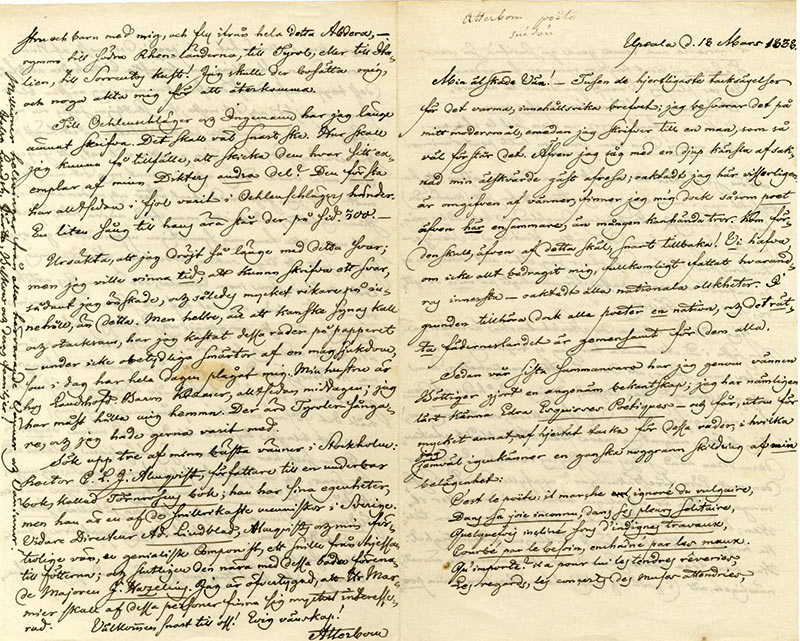 Atterbom poëte
suédois
Upsala d. 18 Mars 1838.
Min älskade Vän! – Tusen de hjertligaste tacksägelser
för det varma, innehållsrika brefvet; jag besvarar det på
mitt modersmål, emedan jag skrifver till en man, som så
väl förstår det. Äfven jag såg med en djup känsla af sak-
nad min älskvärde gäst afresa; oaktadt jag här visserligen
är omgifven af vänner, finner jag mig dock såsom poet
äfven här ensammare, än mången kanhända tror. Kom för
den skull, äfven af detta skäl, snart tillbaka! Vi hafva,
om icke allt bedragit mig, fullkomligt fattat hvarand-
ras innersta – oaktadt alla nationala olikheter. I
grunden tillhöra dock alla poëter en nation, och det rät-
ta fäderneslandet är gemensamt för dem alla.
Sedan vår sista sammanvaro har jag genom vännen
Böttiger gjort en angenäm bekantskap; jag har nämligen
lärt känna Edra Esquisses Poëtiques – och får, utom för
mycket annat, af hjertat tacka för dessa rader, i hvilka
jag jemväl igenkänner en ganska noggrann skildring af min
belägenhet:
C'est le poëte: il marche ignoré du vulgaire,
Dans sa joie inconnu, dans ses pleurs solitaire,
Quelquefois incliné sous d'indignes travaux,
Courbé par le besoin, enchaîné par les maux.
Qu'importe? il a pour lui les tendres rêveries,
Les regards, les concerts des muses attendries,
stru och barn med mig, och fly ifrån hela detta Abdera, –
rymma till södra Rhen-länderna, till Tyrol, eller till Ita-
lien, till Sorrentos kust! Jag skulle der bosätta mig,
och noga akta mig för att återkomma.
Till Oehlenschläger och Ingemann har jag länge
ämnat skrifva. Det skall väl snart ske. Hur skall
jag kunna få tillfälle, att skicka dem hvar sitt ex-
emplar af mina Dikters andra del? Den första
har alltsedan i fjol varit i Oehlenschlägers händer.
En liten sång till hans ära står der på sid. 300. –
Ursäkta, att jag dröjt så länge med detta svar;
men jag ville vinna tid, att kunna skrifva ett svar,
sådant jag önskade, och således mycket rikare på in-
nehåll, än detta. Men hellre, än att kanske synas kall
och otacksam, har jag kastat dessa rader på papperet
– under icke obetydliga smärtor af en magsjukdom,
som i dag har hela dagen plågat mig. Min hustru är
hos Landshöfd. Baron Kræmer, alltsedan middagen; jag
har måst hålla mig hemma. Der äro Tyrolersånga-
re, och jag hade gerna varit med.
Sök upp tre af mina bästa vänner i Stockholm:
Rector C. L. J. Almqvist, författare till en underbar
bok, kallad Törnrosens bok; han har sina egenheter,
men han är en af de snillerikaste menniskor i Sverige.
Vidare Director Ad. Lindblad, Almqvists och min för-
trolige vän, en genialisk Componist, ett snille från hjessan
till fötterna; och slutligen den nära med dessa båda förena-
de Majoren J. Hazelius. Jag är öfvertygad, att Hr Mar-
mier skall af dessa personer finna sig mycket interesse-
rad. Välkommen snart till oss! Evig vänskap!
Atterbom